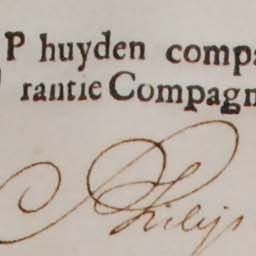 P huyden compa
rantie Compagn
Philip